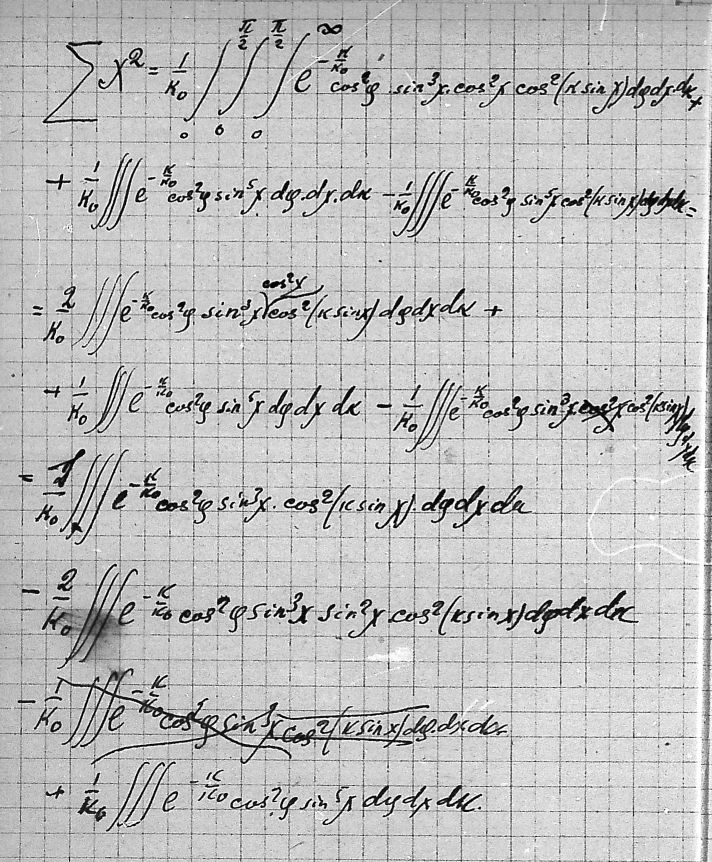 ∑ χ² = 1/κ₀ ∫₀^{π/2} ∫₀^{π/2} ∫₀^∞ e^{-κ/κ₀} cos²φ · sin³χ · cos²χ cos²(κ sin χ) dφ dχ dκ +
+ 1/κ₀ ∭ e^{-κ/κ₀} cos²φ sin⁵χ dφ · dχ · dκ - 1/κ₀ ∭ e^{-κ/κ₀} cos²φ sin⁵χ cos²(κ sin χ) dφ dχ dκ =
= 2/κ₀ ∭ e^{-κ/κ₀} cos²φ sin³χ cos²χ cos²(κ sin χ) dφ dχ dκ +
+ 1/κ₀ ∭ e^{-κ/κ₀} cos²φ sin⁵χ dφ dχ dκ - 1/κ₀ ∭ e^{-κ/κ₀} cos²φ sin³χ cos²(κ sin χ) dφ dχ dκ
= 1/κ₀ ∭ e^{-κ/κ₀} cos²φ sin³χ · cos²(κ sin χ) · dφ dχ dκ
- 2/κ₀ ∭ e^{-κ/κ₀} cos²φ sin³χ sin²χ cos²(κ sin χ) dφ dχ dκ
- 1/κ₀ ∭ e^{-κ/κ₀} cos²φ sin³χ cos²(κ sin χ) dφ · dχ dκ
+ 1/κ₀ ∭ e^{-κ/κ₀} cos²φ sin⁵χ dφ dχ dκ.